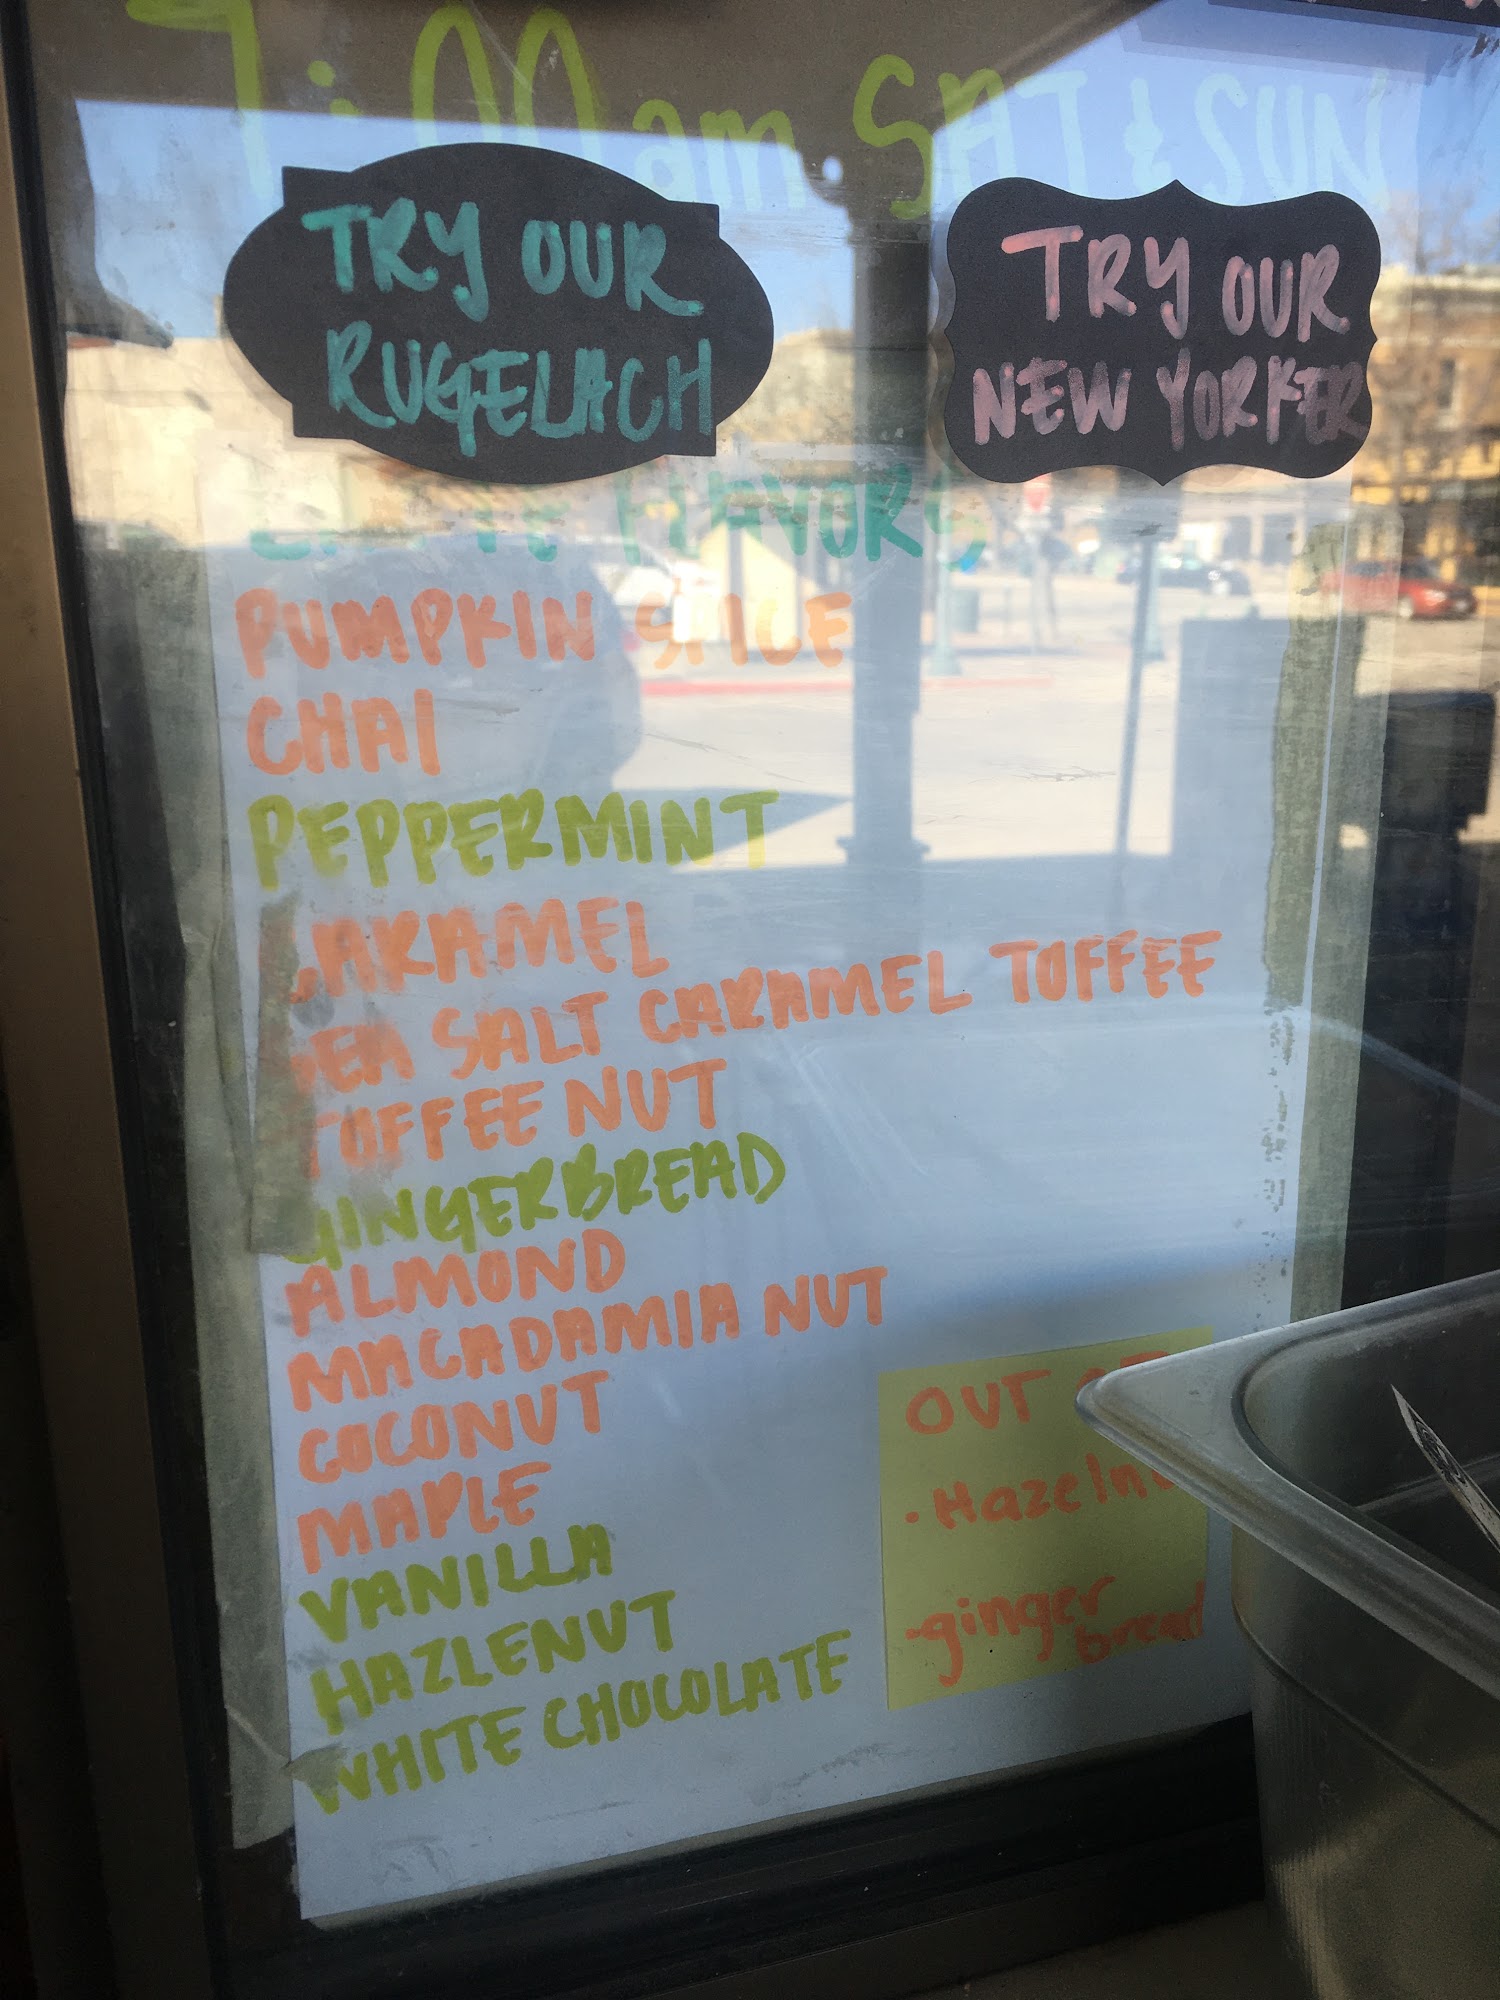 7:00am SAT & SUN
TRY OUR
RUGELACH
TRY OUR
NEW YORKER
LATTE FLAVORS
PUMPKIN SPICE
CHAI
PEPPERMINT
CARAMEL
SEA SALT CARAMEL TOFFEE
TOFFEE NUT
GINGERBREAD
ALMOND
MACADAMIA NUT
COCONUT
MAPLE
VANILLA
HAZLENUT
WHITE CHOCOLATE
OUT OF
· Hazelnu
· ginger
bread